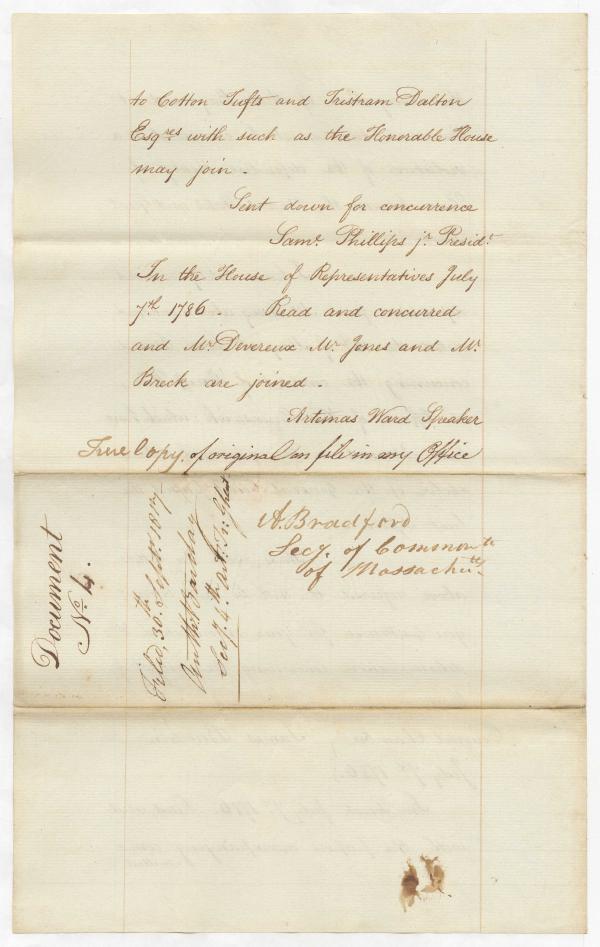 to Cotton Tufts and Tristram Dalton
Esqres with such as the Honorable House
may join.
Sent down for concurrence
Saml. Phillips jr. Presidt.
In the House of Representatives July
7th 1786. Read and concurred
and Mr. Devereux Mr. Jones and Mr.
Breck are joined.
Artemas Ward Speaker
True Copy. of original on file in my Office
A. Bradford
Secy. of Commonwth
of Massachtts.
Document
No. 4.
Filed, 30th. Septr. 1817.
Anth: Barclay
Secy. 4th. Art: Tr: Ghent